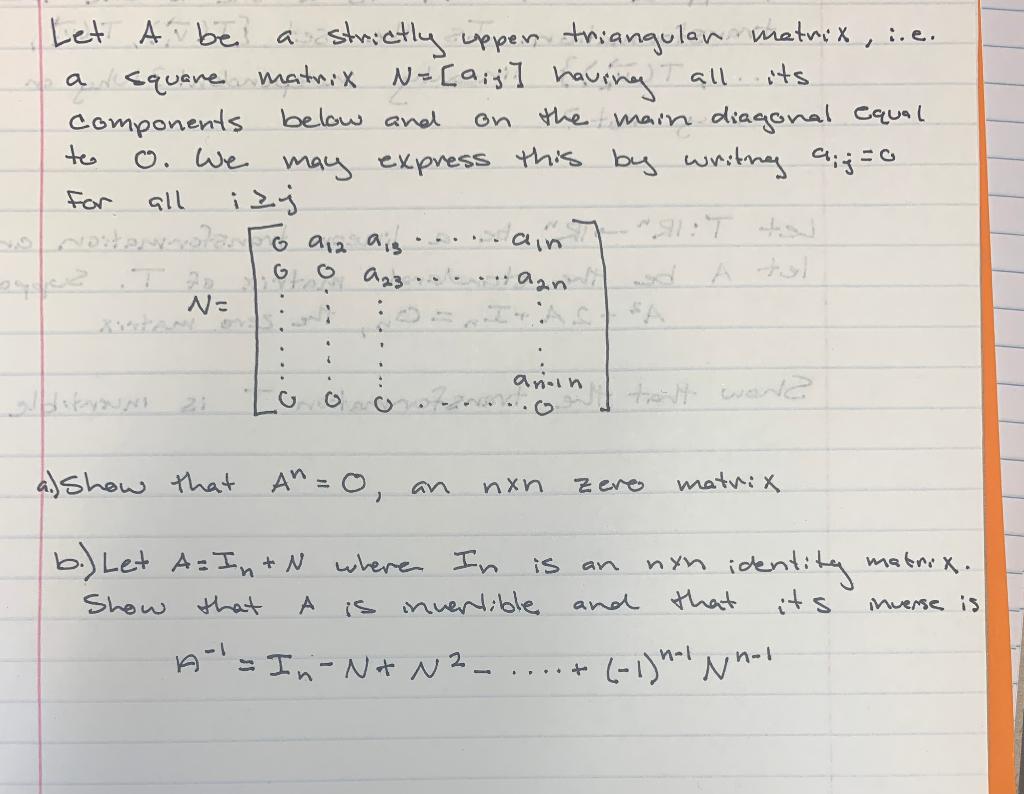 Let A be a strictly upper triangular matrix, i.e.
a square matrix N=[aij] having all its
components below and on the main diagonal equal
to 0. We may express this by writing aij=0
For all i≥j
N= [0 a12 a13 ...... a1n
0 0 a23 ...... a2n
: : : :
: : : :
: : : an-1n
0 0 0 ....... 0]
a.) Show that Aⁿ = 0, an nxn zero matrix
b.) Let A = In + N where In is an nxn identity matrix.
Show that A is invertible and that its inverse is
A⁻¹ = In - N + N² - ..... + (-1)ⁿ⁻¹ Nⁿ⁻¹